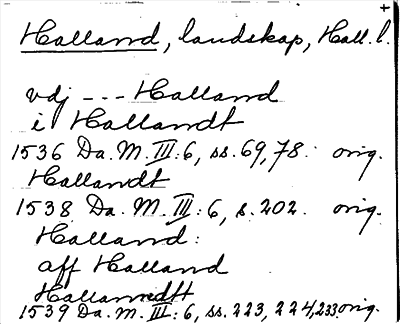 Halland, landskap, Hall. l.
vdj --- Halland
i Hallandt
1536 Da. M. III: 6, ss. 69, 78. orig.
Hallandt
1538 Da. M. III: 6, s. 202. orig.
Halland:
aff Halland
Hallanndtt
1539 Da. M. III: 6, ss. 223, 224, 233 orig.